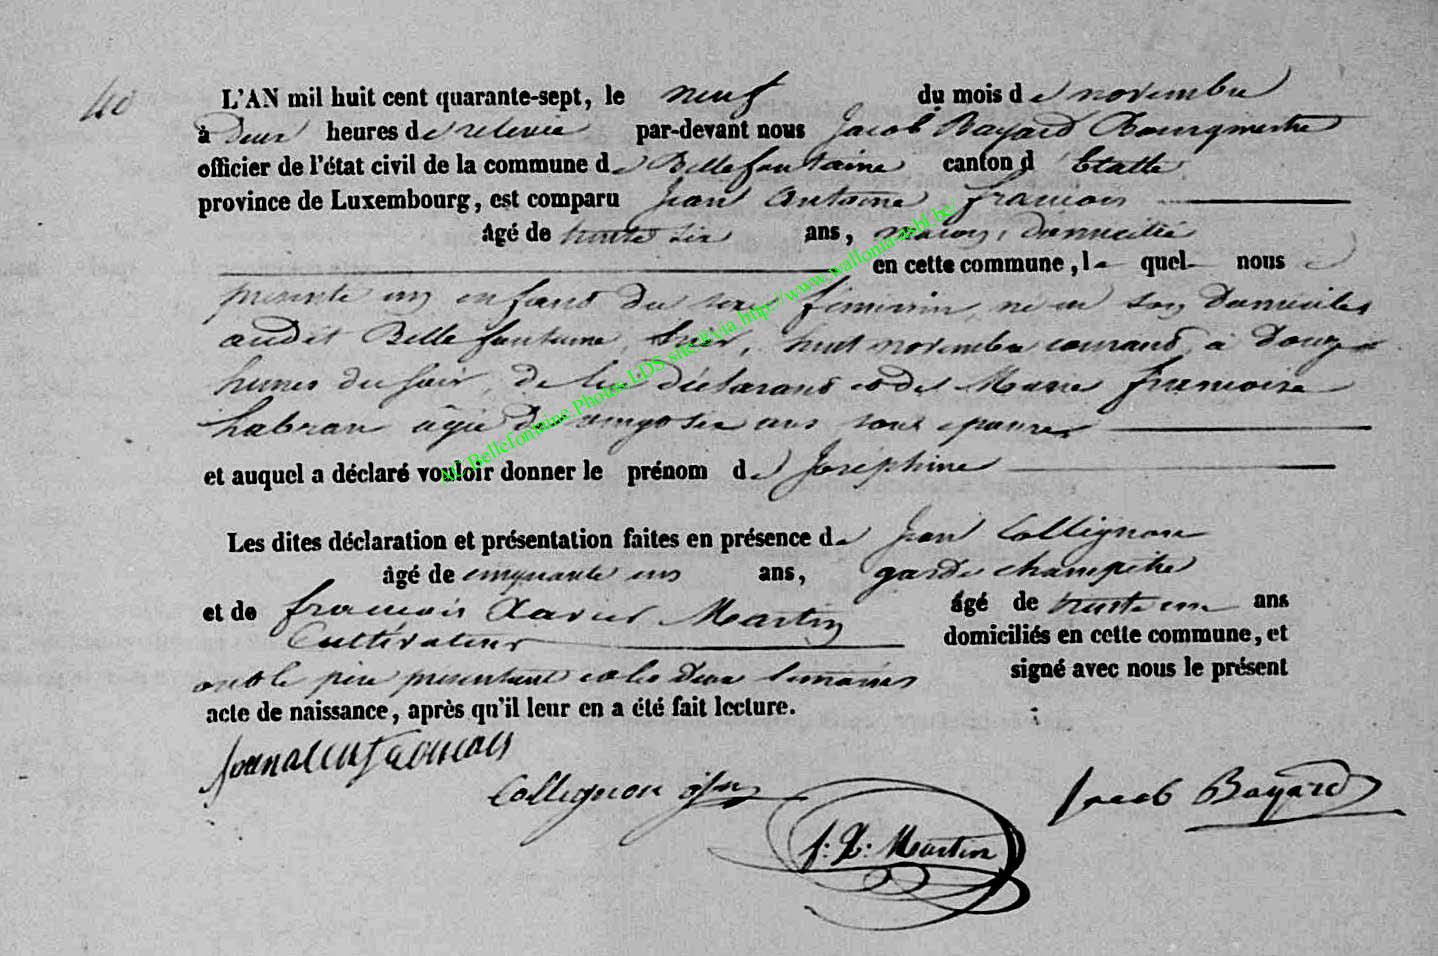 40
L'AN mil huit cent quarante-sept, le neuf du mois de novembre
à Deux heures de relevée par-devant nous Jacob Bayard Bourgmestre
officier de l'état civil de la commune de Bellefontaine canton d'Etalle
province de Luxembourg, est comparu Jean Antoine françois
âgé de trente six ans, maçon, domicilié
en cette commune, le quel nous a
présenté un enfant du sexe féminin, né en son Domicile
audit Bellefontaine, hier, huit novembre courant, à Douze
heures du soir, de lui déclarant et de Marie françoise
habran âgée de vingt six ans son épouse
et auquel a déclaré vouloir donner le prénom de Joséphine
Les dites déclaration et présentation faites en présence de Jean Collignon
âgé de cinquante ans, garde champêtre
et de françois Xavier Martin âgé de trente ans
Cultivateur domiciliés en cette commune, et
ont le père présentant et les deux témoins signé avec nous le présent
acte de naissance, après qu'il leur en a été fait lecture.
françois
Collignon
f: X: Martin
Jacob Bayard
AC Bellefontaine Photos LDS site @ via http://www.wallonia-asbl.be/